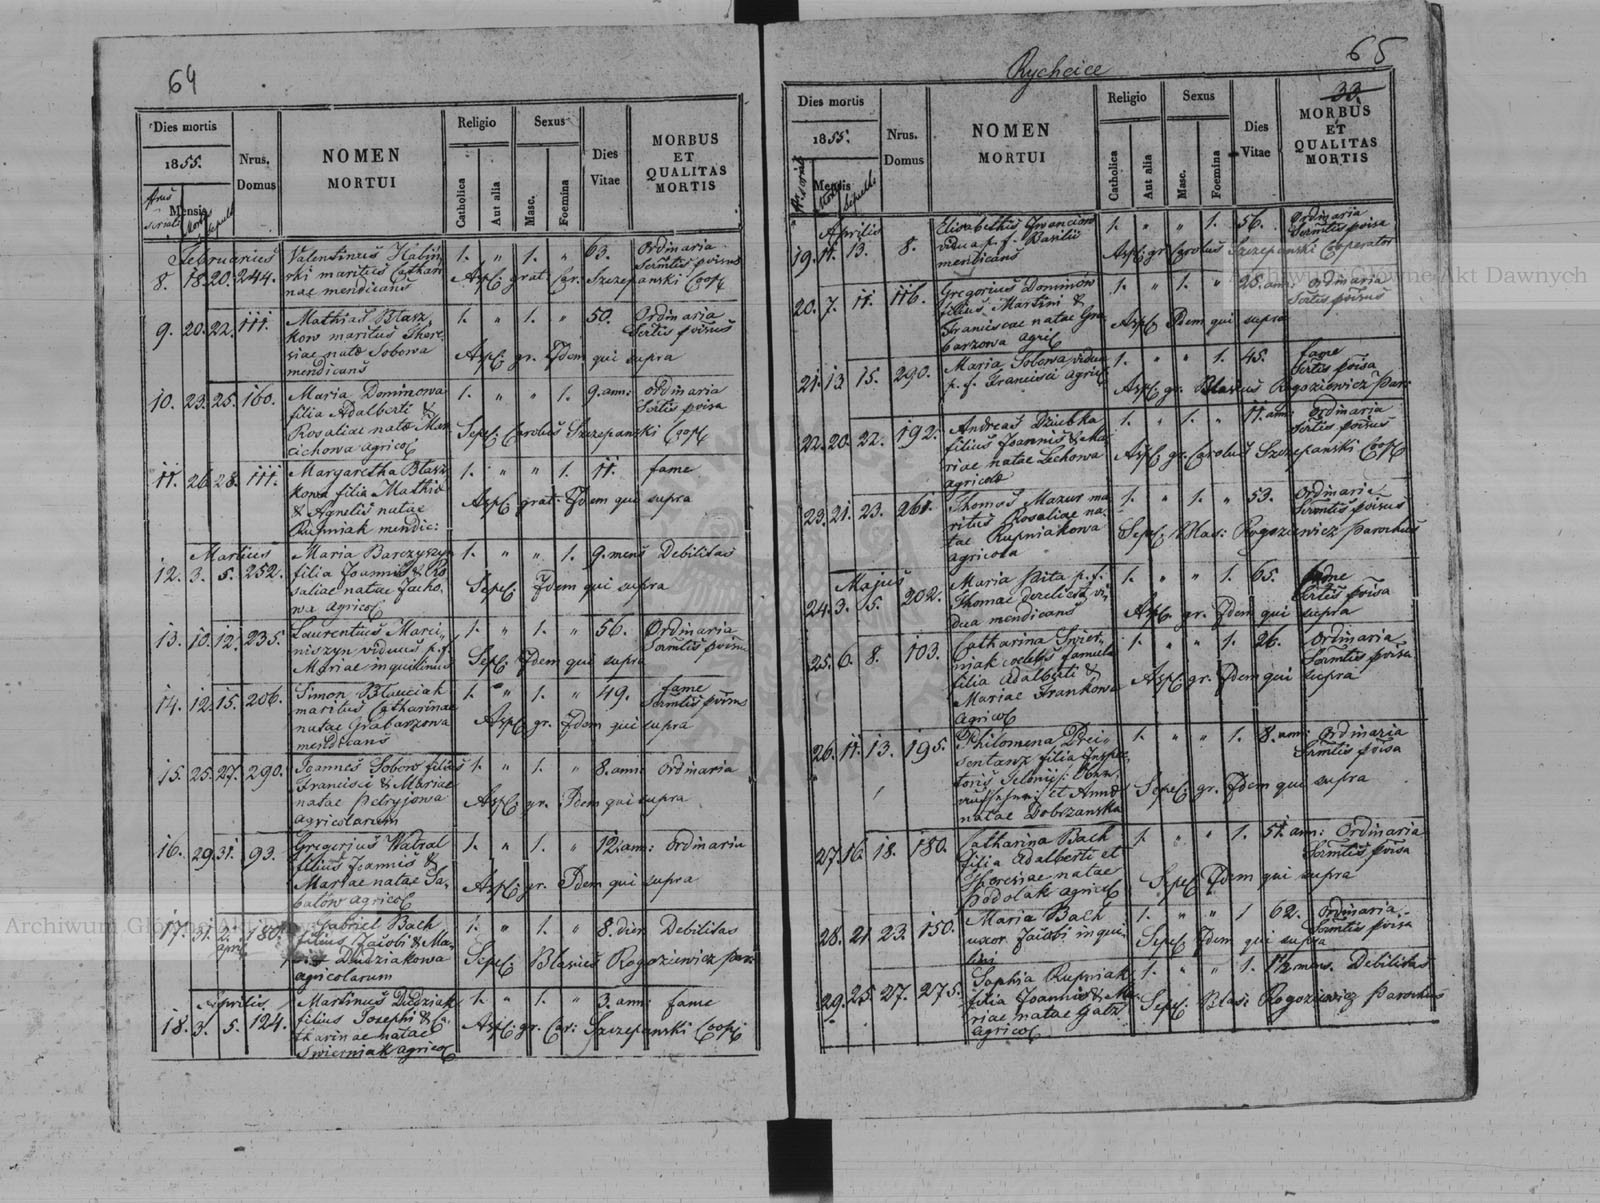 64
Dies mortis
1855.
Mensis
Nrus.
Domus
NOMEN
MORTUI
Religio
Catholica
Aut alia
Sexus
Masc.
Foemina
Dies
Vitae
MORBUS
ET
QUALITAS
MORTIS
Februarius
8. 18. 20. 244.
Valentinus Habiń
ski maritus Cathari
nae mendicans
1. „ 1. „ 63. Ordinaria
Asp: grat: Car: Szczepanski Coop
9. 20. 22. 111.
Mathias Błasz
kow maritus There
siae natae Sobowa
mendicans
1. „ 1. „ 50. Ordinaria
Asp: gr. Idem qui supra
10. 23. 25. 160.
Maria Dominowa
filia Adalberti &
Rosaliae natae Mar
cichowa agricol
1. „ „ 1. 9. ann: Ordinaria
Sepel: Carolus Szczepanski Coop
11. 26. 28. 111.
Margaretha Błasz
kowa filia Mathiae
& Agnetis natae
Rupniak mendic:
1. „ „ 1. 11. fame
Asp: grat. Idem qui supra
Martius
12. 3. 5. 252.
Maria Barczyszyn
filia Joannis & Ro
saliae natae Jacho
wa agricol
1. „ „ 1. 9. mens Debilitas
Sepel: Idem qui supra
13. 10. 12. 235.
Laurentius Marci
niszyn viduus p. f.
Mariae inquilinus
1. „ 1. „ 56. Ordinaria
Sepel: Idem qui supra
14. 12. 15. 206.
Simon Błauciak
maritus Catharinae
natae Grabarzowa
mendicans
1. „ 1. „ 49. fame
Asp: gr. Idem qui supra
15. 25. 27. 290.
Joannes Sobow filius
Francisci & Mariae
natae Petryjowa
agricolarum
1. „ 1. „ 8. ann: Ordinaria
Asp: gr. Idem qui supra
16. 29. 31. 93.
Gregorius Watral
filius Joannis &
Mariae natae Sa
batów agricol
1. „ 1. „ 12. ann: Ordinaria
Asp: gr. Idem qui supra
17. 31. 2. April 180.
Gabriel Bach
filius Jacobi & Ma
riae Dudziakowa
agricolarum
1. „ 1. „ 8. dier. Debilitas
Sepel: Blasius Rogoziewicz par:
Aprilis
18. 3. 5. 124.
Martinus Dudziak
filius Josephi & Ca
tharinae natae
Swierniak agricol
1. „ 1. „ 3. ann: fame
Asp: gr. Car: Szczepanski Coop
Rychcice
65
33.
Dies mortis
1855.
Mensis
Nrus.
Domus
NOMEN
MORTUI
Religio
Catholica
Aut alia
Sexus
Masc.
Foemina
Dies
Vitae
MORBUS
ET
QUALITAS
MORTIS
Aprilis
19. 11. 13. 8.
Elisabethis Iwanciow
vidua p. f. Basilii
mendicans
1. „ „ 1. 56. Ordinaria
Asp: gr Carolus Szczepanski Cooperator
20. 7. 11. 116.
Gregorius Dominow
filius Martini &
Franciscae natae Gra
barzowa agric
1. „ 1. „ 25. ann: Ordinaria
Asp: Idem qui supra
21. 13. 15. 290.
Maria Sobowa vidua
p. f. Francisci agricol
1. „ „ 1. 45. fame
Asp: gr: Blasius Rogoziewicz Par:
22. 20. 22. 192.
Andreas Dziubka
filius Joannis & Ma
riae natae Lechowa
agricolae
1. „ 1. „ 11. ann: Ordinaria
Asp: gr. Carolus Szczepanski Coop
23. 21. 23. 261.
Thomas Mazur ma
ritus Rosaliae na
tae Rupniakowa
agricola
1. „ 1. „ 53. Ordinaria
Sepel: Blas: Rogoziewicz Parochus
Majus
24. 3. 5. 202.
Maria Pita p. f.
Thomae derelicta vi
dua mendicans
1. „ „ 1. 65. fame
Asp. gr. Idem qui supra
25. 6. 8. 103.
Catharina Swier
niak coelebs famula
filia Adalberti &
Mariae Frankowa
agricol
1. „ „ 1. 26. Ordinaria
Asp: gr. Idem qui supra
26. 11. 13. 195.
Philomena Drei
sentanz filia Inspec
toris
et Annae
natae Dobrzanska
1. „ „ 1. 8. ann: Ordinaria
Sepel: gr. Idem qui supra
27. 16. 18. 180.
Catharina Bach
filia Adalberti et
Theresiae natae
Podolak agricol
1. „ „ 1. 51. ann: Ordinaria
Sepel: Idem qui supra
28. 21. 23. 150.
Maria Bach
uxor Jacobi inqui
lini
1. „ „ 1 62. Ordinaria
Sepel: Idem qui supra
29. 25. 27. 275.
Sophia Rupniak
filia Joannis & Ma
riae natae Gatz
agricol
1. „ „ 1. 1½ mens. Debilitas
Sepel: Blas: Rogoziewicz Parochus
Archiwum Główne Akt Dawnych
Archiwum Główne Akt Dawnych